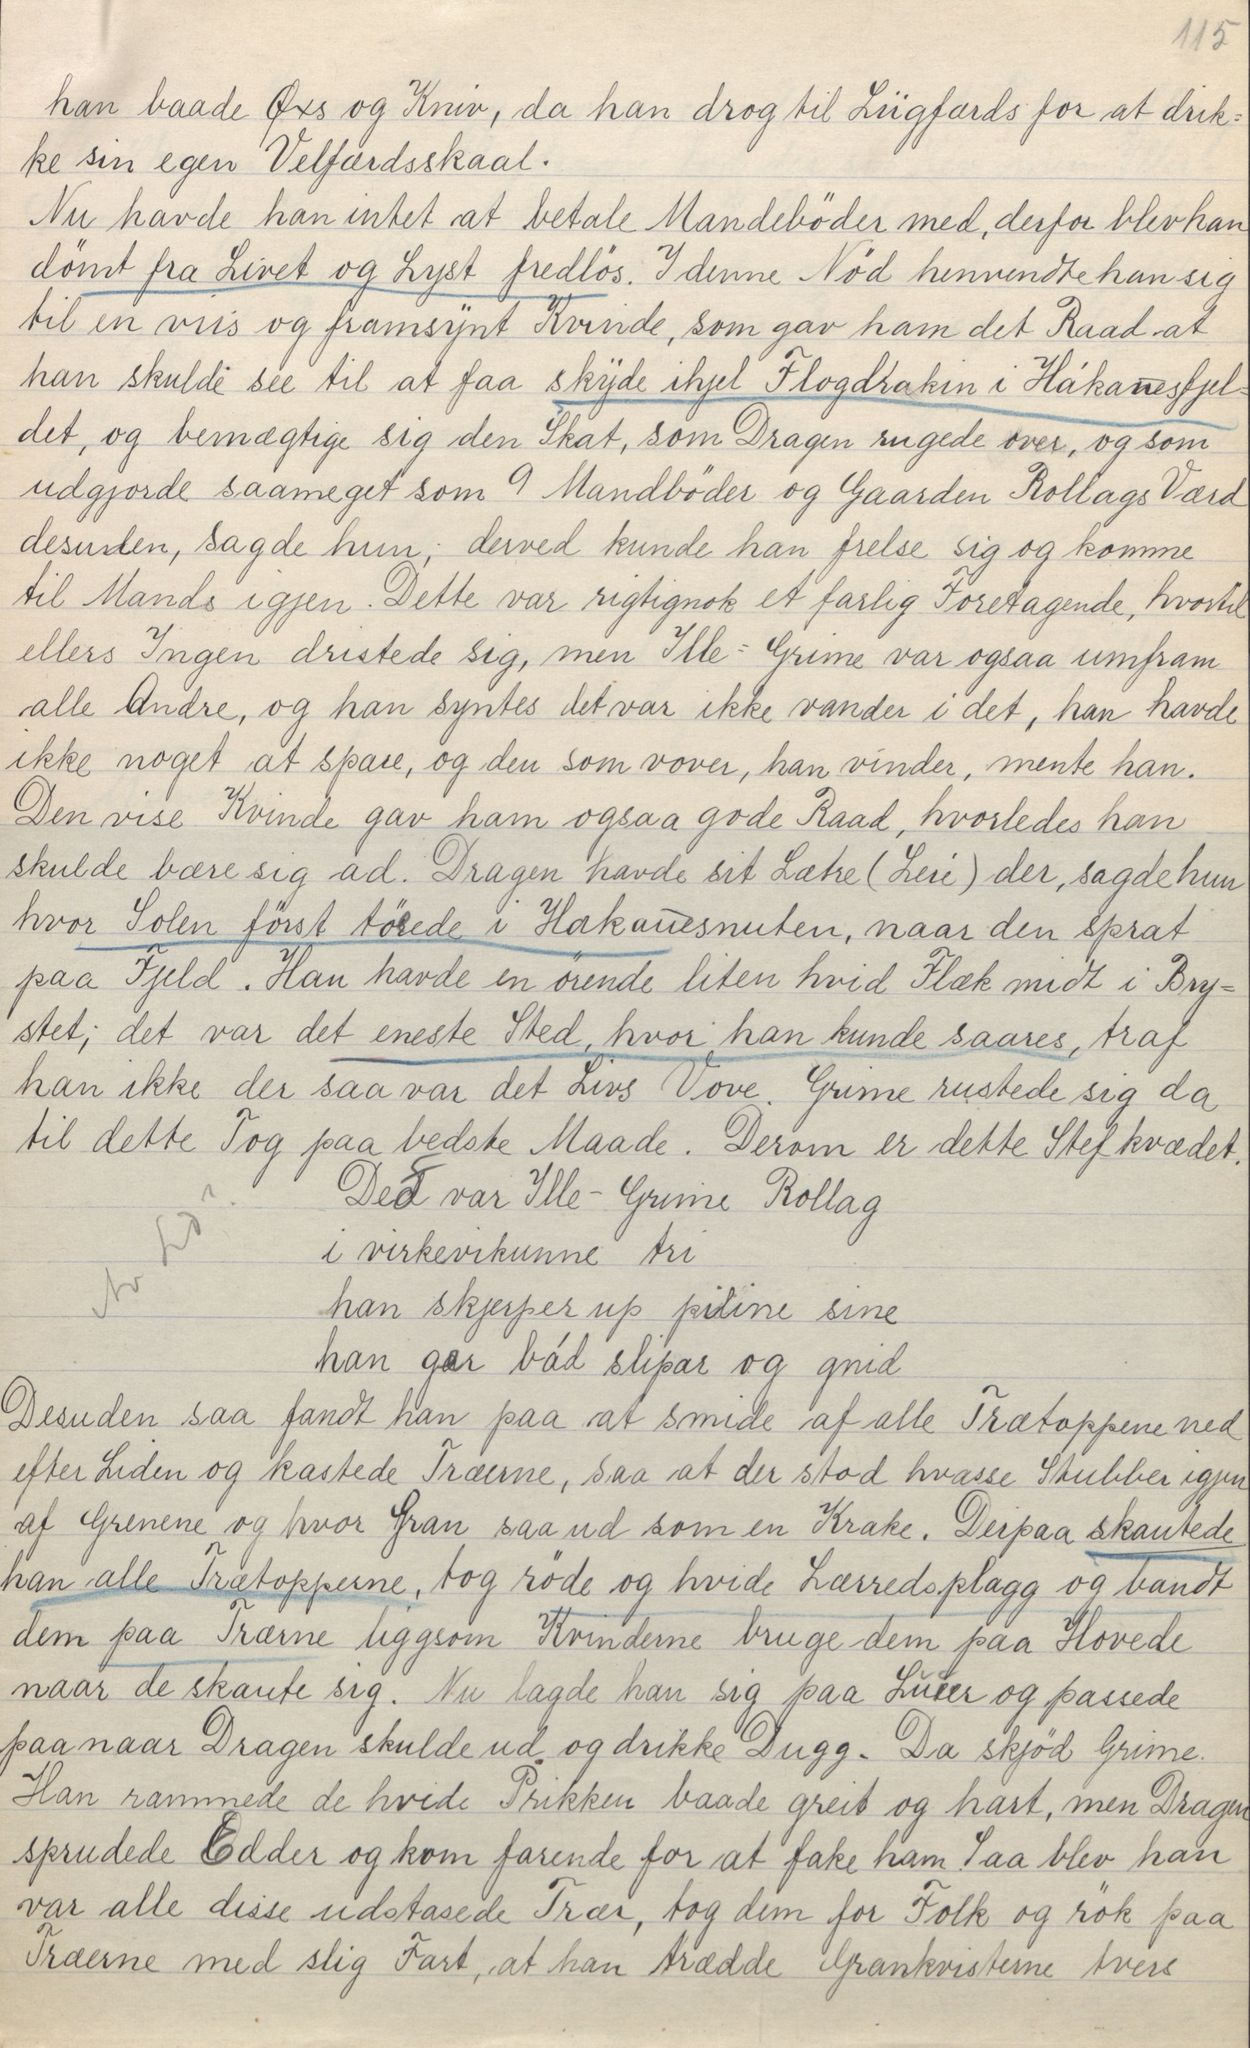 115
han baade Øxs og Kniv, da han drog til Liigfærds for at drik=
ke sin egen Velfærdsskaal.
Nu havde han intet at betale Mandeböder med, derfor blev han
dömt fra Livet og Lyst fredlös. I denne Nöd henvendte han sig
til en viis og framsÿnt Kvinde, som gav ham det Raad at
han skulde see til at faa skÿde ihjel Flogdrakin i Håkanesfjel=
det, og bemægtige sig den Skat, som Dragen rugede over, og som
udgjorde saameget som 9 Mandböder og Gaarden Rollags Værd
desuden, sagde hun; derved kunde han frelse sig og komme
til Mands igjen. Dette var rigtignok et farlig Foretagende, hvortil
ellers Ingen dristede sig, men Ille-Grime var ogsaa umfram
alle Andre, og han syntes det var ikke vander i det, han havde
ikke noget at spare, og den som vover, han vinder, mente han.
Den vise Kvinde gav ham ogsaa gode Raad, hvorledes han
skulde bære sig ad. Dragen havde sit Lætre (Leie) der, sagde hun
hvor Solen först törede i Hakanesnuten, naar den sprat
paa Fjeld. Han havde en örende liten hvid Flæk midt i Bry=
stet; det var det eneste Sted, hvor han kunde saares, traf
han ikke der saa var det Livs Vove. Grime rustede sig da
til dette Tog paa bedste Maade. Derom er dette Stef kvædet.
Det var Ille-Grime Rollag
i virkevikunne tri
han skjerper up piline sine
han ger båd slipar og gnid
Desuden saa fandt han paa at smide af alle Trætoppene ned
efter Liden og kastede Træerne, saa at der stod hvasse Stubber igjen
af Grenene og hvor Gran saa ud som en Krake. Derpaa skautede
han alle Trætopperne, tog röde og hvide Lærredsplagg og bandt
dem paa Trærne liggsom Kvinderne bruge dem paa Hovede
naar de skaute sig. Nu lagde han sig paa Luer og passede
paa naar Dragen skulde ud og drikke Dugg. Da skjöd Grime.
Han rammede de hvide Prikken baade greit og hart, men Dragen
sprudede Edder og kom farende for at fake ham. Saa blev han
var alle disse udstasede Trær, tog dem for Folk og rök paa
Træerne med slig Fart, at han trædde Grankvisterne tvers